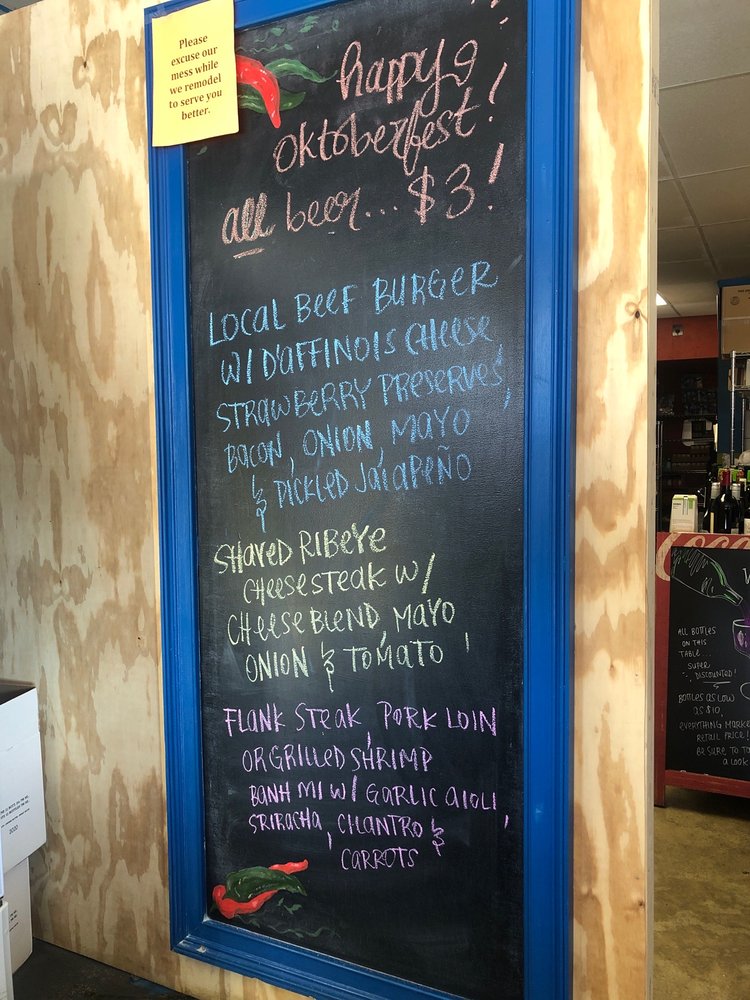 Please
excuse our
mess while
we remodel
to serve you
better.
happy
oktoberfest!
all beer... $3!
LOCAL BEEF BURGER
W/ D'AFFINOIS CHEESE,
STRAWBERRY PRESERVES,
BACON, ONION, MAYO
& PICKLED JALAPEÑO
SHAVED RIBEYE
CHEESESTEAK W/
CHEESE BLEND, MAYO,
ONION & TOMATO
FLANK STEAK, PORK LOIN
OR GRILLED SHRIMP
BANH MI W/ GARLIC AIOLI,
SRIRACHA, CILANTRO &
CARROTS
ALL BOTTLES
ON THIS
TABLE...
SUPER
DISCOUNTED!
BOTTLES AS LOW
AS $10,
EVERYTHING
RETAIL PRICE!
BE SURE TO
A LOOK